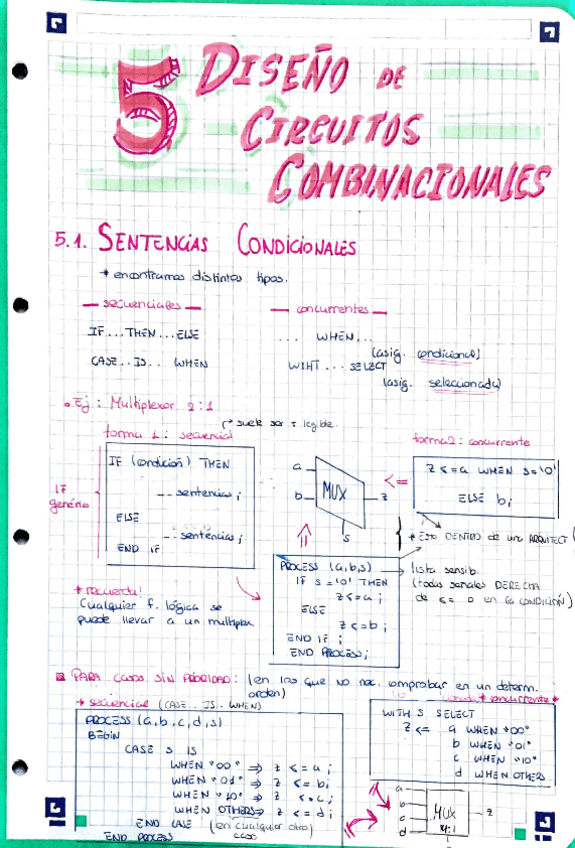 5 DISEÑO DE
CIRCUITOS
COMBINACIONALES
5.1. SENTENCIAS CONDICIONALES
* encontramos distintos tipos.
— secuenciales —
IF...THEN...ELSE
CASE..IS.. WHEN
— concurrentes —
... WHEN...
(asig. condicional)
WIHT ... SELECT
(asig. seleccionada)
Ej: Multiplexor 2:1
suele ser + legible.
forma 1: secuencial
IF genérico
IF (condición) THEN
-- sentencias;
ELSE
-- sentencias;
END IF
a
b
MUX
z
s
forma 2: concurrente
z <= a WHEN s='0'
ELSE b;
* ESTO DENTRO de un ARQUITECT (
* recuerda!
Cualquier f. lógica se
puede llevar a un multiplex.
PROCESS (a,b,s)
IF s='0' THEN
z<=a;
ELSE
z<=b;
END IF;
END PROCESS;
lista sensib.
(todas señales DERECHA
de <= o en la CONDICIÓN)
PARA casos SIN PRIORIDAD: (en los que no nec. comprobar en un determ.
orden)
* secuencial (CASE.. IS.. WHEN)
PROCESS (a,b,c,d,s)
BEGIN
CASE s IS
WHEN "00" => z <= a;
WHEN "01" => z <= b;
WHEN "10" => z <= c;
WHEN OTHERS=> z <= d;
END CASE (en cualquier otro)
caso
END PROCESS
* concurrente *
WITH S SELECT
z <= a WHEN "00"
b WHEN "01"
c WHEN "10"
d WHEN OTHERS
a
b
c
d
MUX
4:1
z